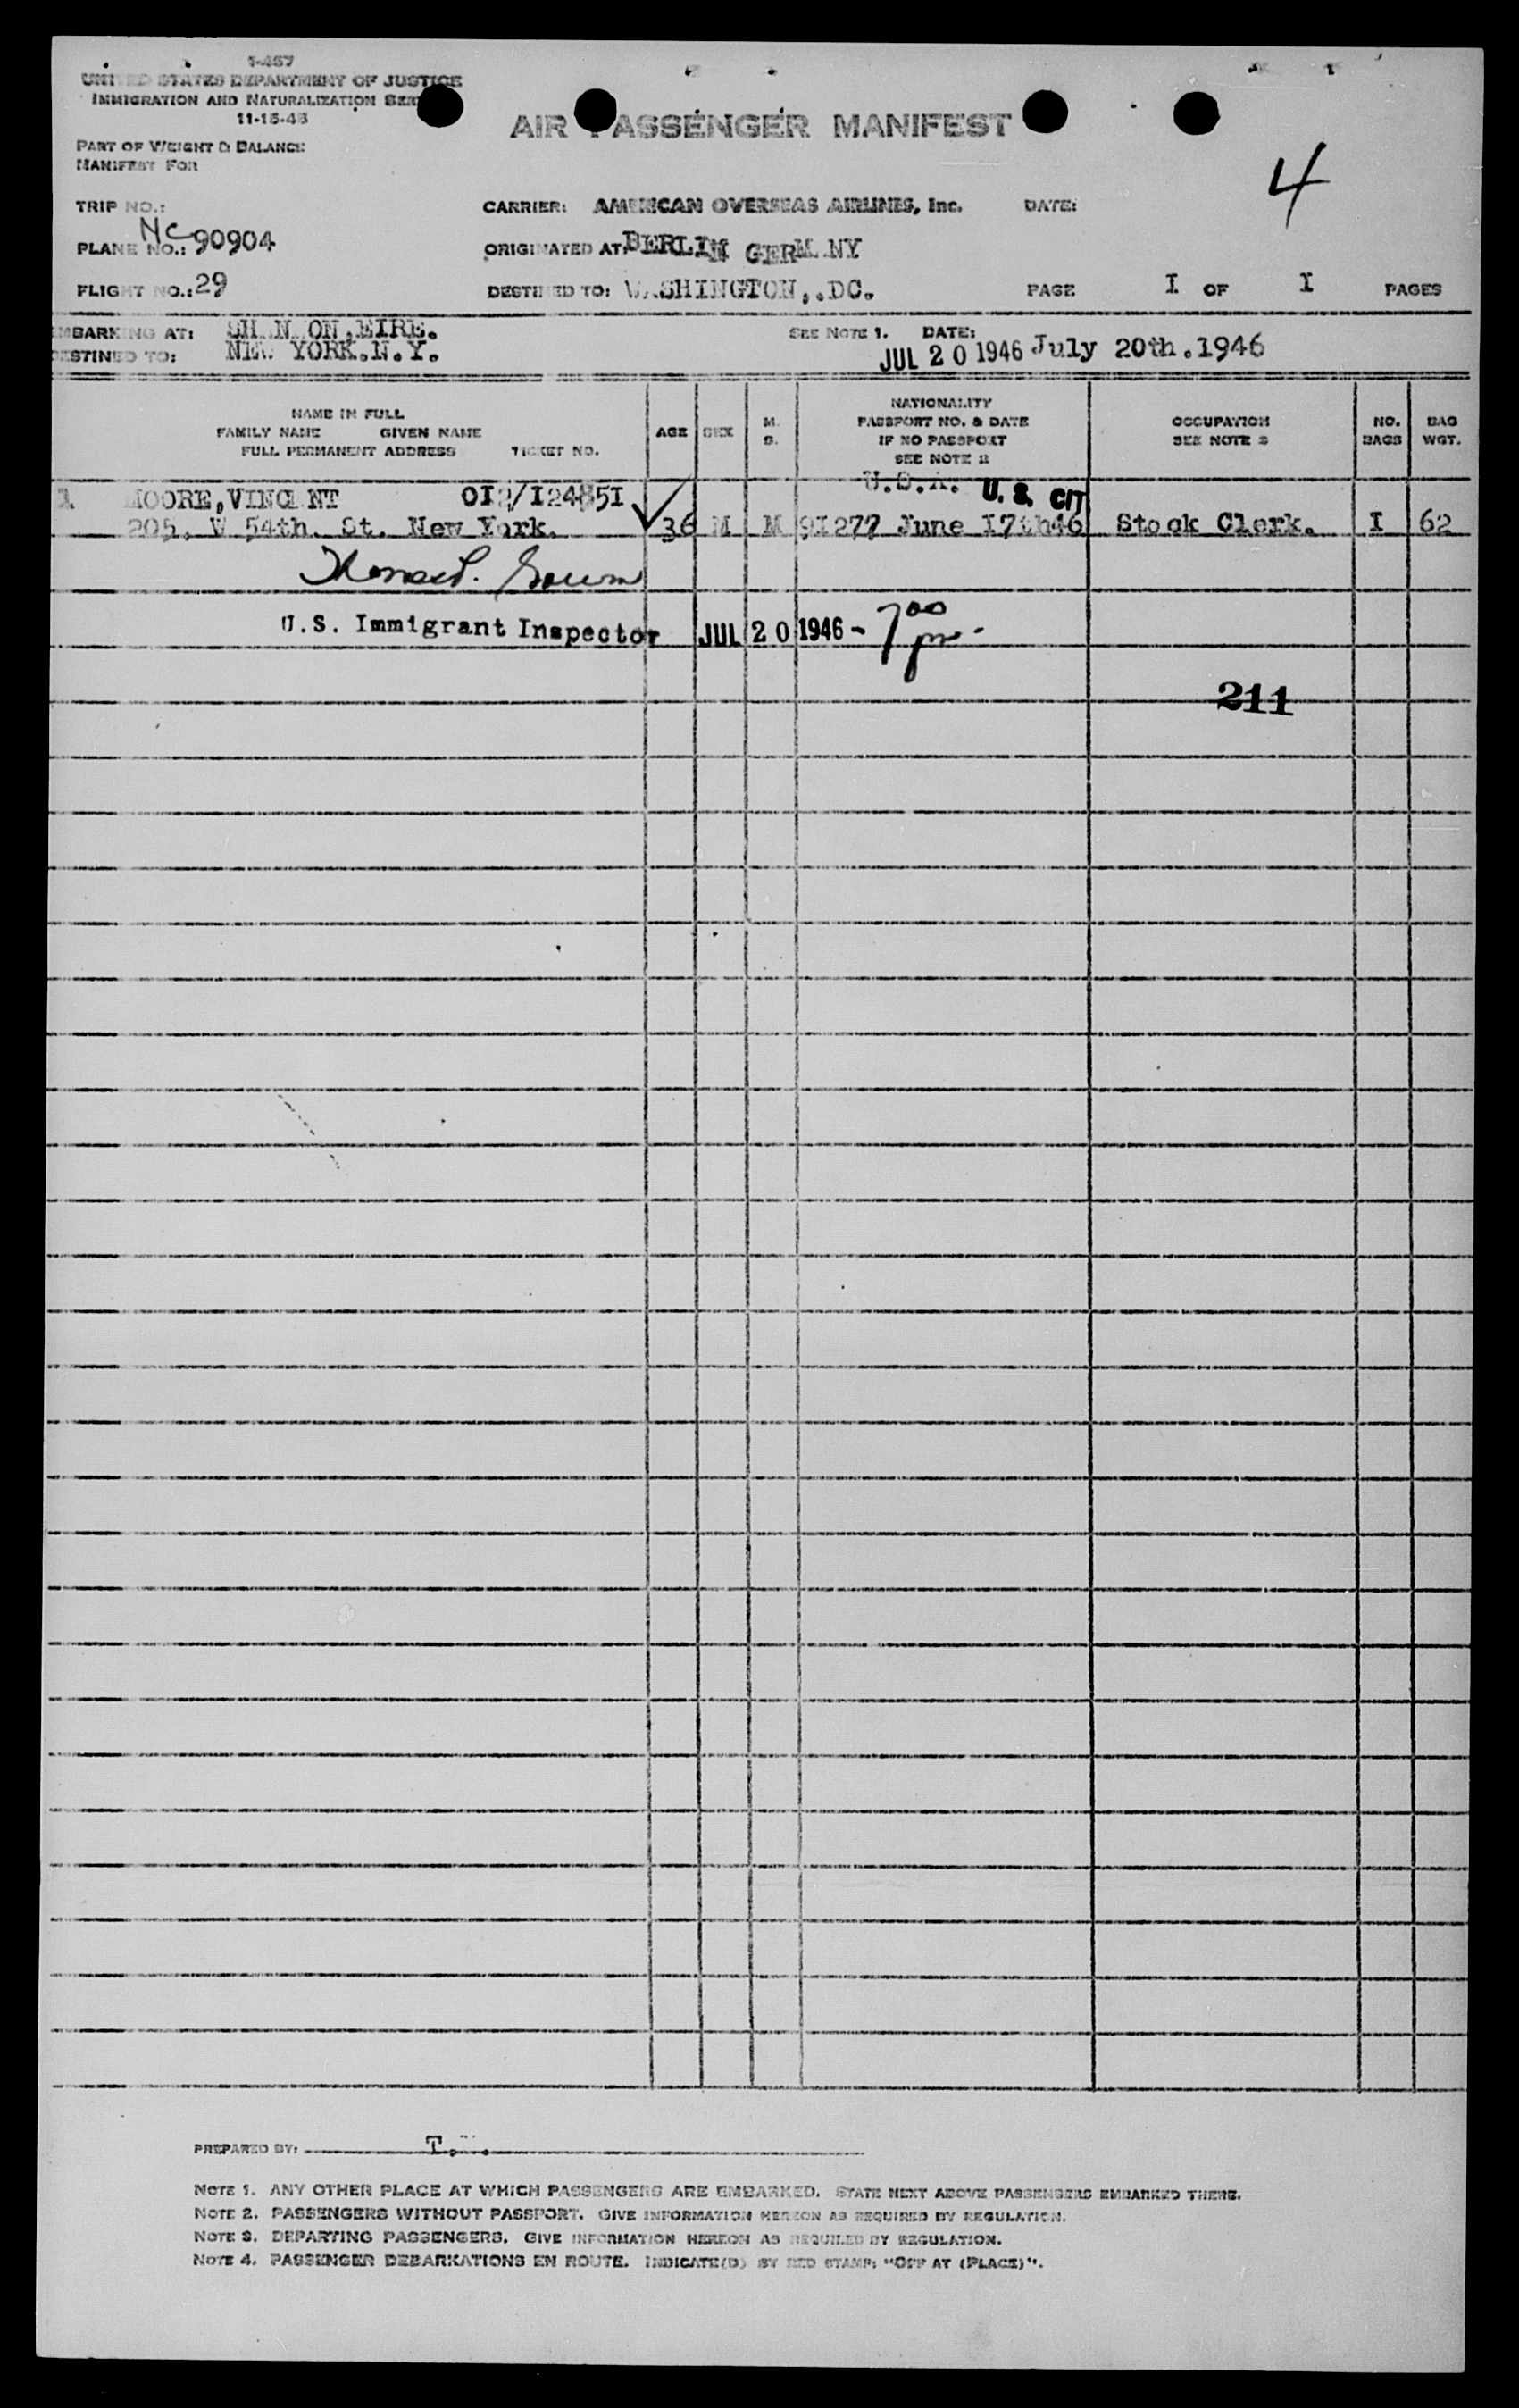 1-457
UNITED STATES DEPARTMENT OF JUSTICE
IMMIGRATION AND NATURALIZATION SER
11-15-45
AIR PASSENGER MANIFEST
4
PART OF WEIGHT & BALANCE
MANIFEST FOR
TRIP NO.: CARRIER: AMERICAN OVERSEAS AIRLINES, Inc. DATE:
PLANE NO.: NC 90904 ORIGINATED AT: BERLIN GERM NY
FLIGHT NO.: 29 DESTINED TO: WASHINGTON,.DC. PAGE I OF I PAGES
EMBARKING AT: SH N ON,EIRE. SEE NOTE 1. DATE:
DESTINED TO: NEW YORK.N.Y. JUL 20 1946 July 20th.1946
NAME IN FULL
FAMILY NAME GIVEN NAME
FULL PERMANENT ADDRESS TICKET NO.
AGE SEX M. S.
NATIONALITY
PASSPORT NO. & DATE
IF NO PASSPORT
SEE NOTE 2
OCCUPATION
SEE NOTE 3
NO. BAGS
BAG WGT.
1 MOORE,VINCENT OI2/I24851 U.S.A. U. S. CIT
205. W 54th. St. New York. 36 M M 91277 June I7th46 Stock Clerk. I 62
U.S. Immigrant Inspector JUL 20 1946 - 7 00 pm -
211
PREPARED BY: T.
NOTE 1. ANY OTHER PLACE AT WHICH PASSENGERS ARE EMBARKED. STATE NEXT ABOVE PASSENGERS EMBARKED THERE.
NOTE 2. PASSENGERS WITHOUT PASSPORT. GIVE INFORMATION HEREON AS REQUIRED BY REGULATION.
NOTE 3. DEPARTING PASSENGERS. GIVE INFORMATION HEREON AS REQUIRED BY REGULATION.
NOTE 4. PASSENGER DEBARKATIONS EN ROUTE. INDICATE(D) BY RED STAMP: "OFF AT (PLACE)".